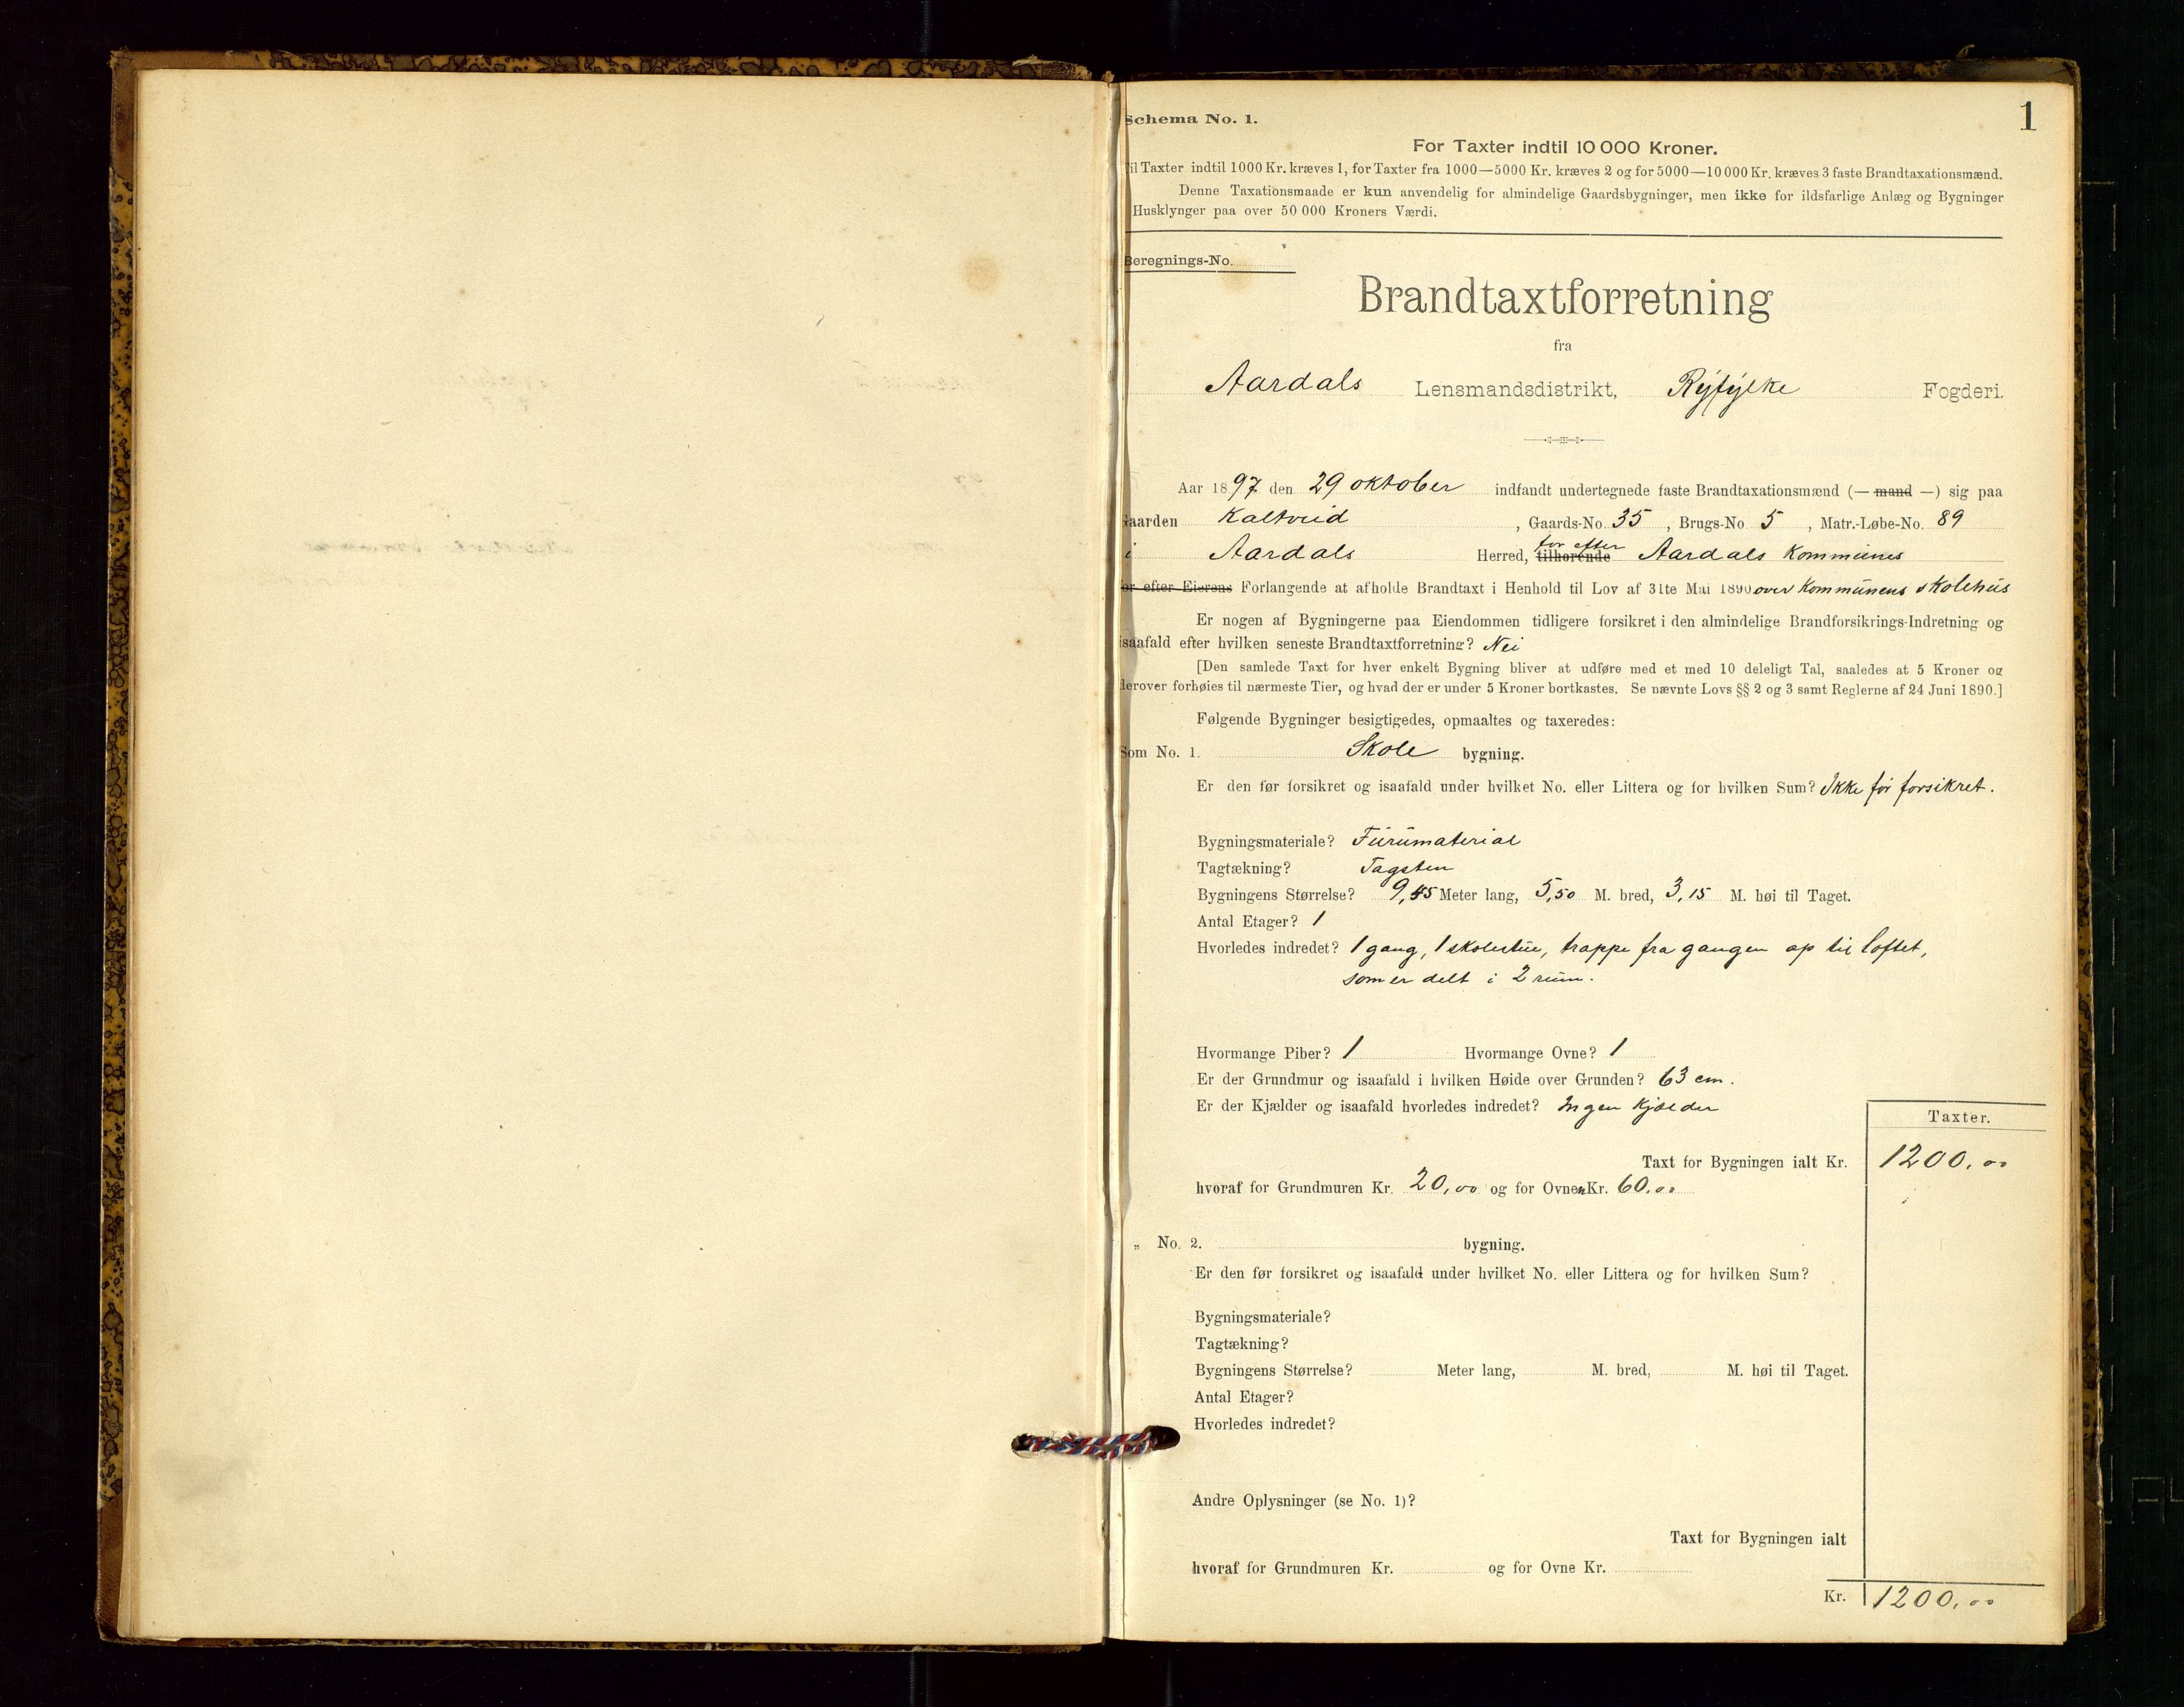 1
Schema No. 1.
For Taxter indtil 10 000 Kroner.
il Taxter indtil 1000 Kr. kræves 1, for Taxter fra 1000—5000 Kr. kræves 2 og for 5000—10 000 Kr. kræves 3 faste Brandtaxationsmænd.
Denne Taxationsmaade er kun anvendelig for almindelige Gaardsbygninger, men ikke for ildsfarlige Anlæg og Bygninger
Husklynger paa over 50 000 Kroners Værdi.
Beregnings-No.
Brandtaxtforretning
fra
Aardals Lensmandsdistrikt, Ryfylke Fogderi.
Aar 1897 den 29 oktober indfandt undertegnede faste Brandtaxationsmænd (— mand —) sig paa
Gaarden Kaltveid, Gaards-No. 35, Brugs-No. 5, Matr.-Løbe-No. 89
i Aardals Herred, tilhørende for efter Aardals Kommunes
or efter Eierens Forlangende at afholde Brandtaxt i Henhold til Lov af 31te Mai 1890 over Kommunens skolehus
Er nogen af Bygningerne paa Eiendommen tidligere forsikret i den almindelige Brandforsikrings-Indretning og
isaafald efter hvilken seneste Brandtaxtforretning? Nei
[Den samlede Taxt for hver enkelt Bygning bliver at udføre med et med 10 deleligt Tal, saaledes at 5 Kroner og
derover forhøies til nærmeste Tier, og hvad der er under 5 Kroner bortkastes. Se nævnte Lovs §§ 2 og 3 samt Reglerne af 24 Juni 1890.]
Følgende Bygninger besigtigedes, opmaaltes og taxeredes:
Som No. 1. Skole bygning.
Er den før forsikret og isaafald under hvilket No. eller Littera og for hvilken Sum? Ikke før forsikret.
Bygningsmateriale? Furumaterial
Tagtækning? Tagsten
Bygningens Størrelse? 9,45 Meter lang, 5,50 M. bred, 3,15 M. høi til Taget.
Antal Etager? 1
Hvorledes indredet? 1 gang, 1 skolestue, trappe fra gangen op til loftet,
som er delt i 2 rum.
Hvormange Piber? 1 Hvormange Ovne? 1
Er der Grundmur og isaafald i hvilken Høide over Grunden? 63 cm.
Er der Kjælder og isaafald hvorledes indredet? Ingen Kjælder
Taxter.
Taxt for Bygningen ialt Kr. 1200,00
hvoraf for Grundmuren Kr. 20,00 og for Ovnen Kr. 60,00
„ No. 2. bygning.
Er den før forsikret og isaafald under hvilket No. eller Littera og for hvilken Sum?
Bygningsmateriale?
Tagtækning?
Bygningens Størrelse? Meter lang, M. bred, M. høi til Taget.
Antal Etager?
Hvorledes indredet?
Andre Oplysninger (se No. 1)?
Taxt for Bygningen ialt
hvoraf for Grundmuren Kr. og for Ovne Kr.
Kr. 1200,00